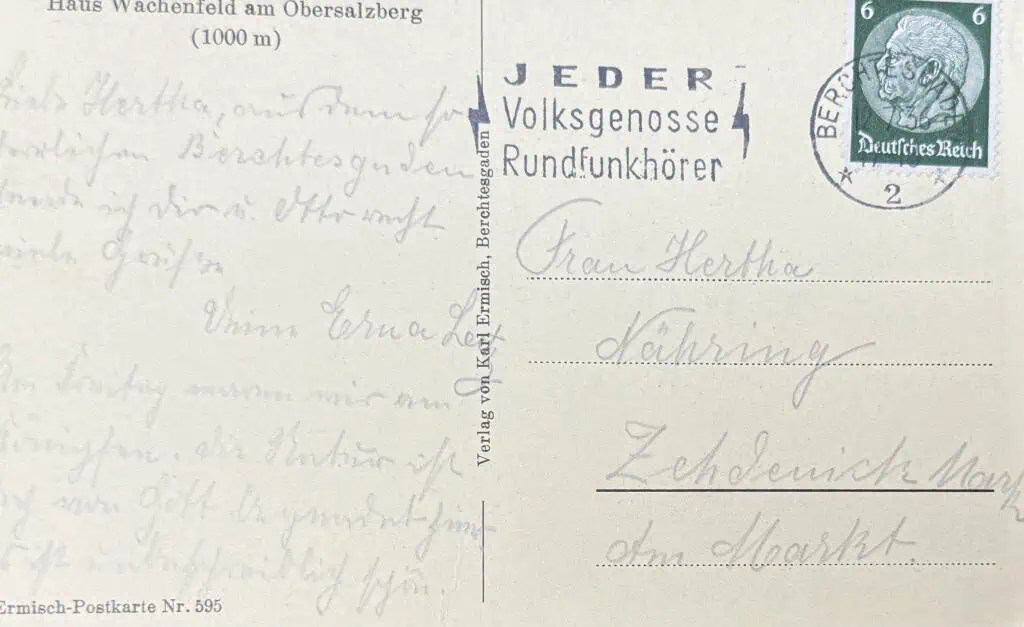 Haus Wachenfeld am Obersalzberg
(1000 m)
Liebe Hertha, aus dem so
herrlichen Berchtesgaden
sende ich Dir u. Otto recht
viele Grüße
Deine Erna
Am Freitag waren wir am
Königssee. Die Natur ist
von Gott begnadet hier
ist unbeschreiblich schön.
Ermisch-Postkarte Nr. 595
Verlag von Karl Ermisch, Berchtesgaden
JEDER
Volksgenosse
Rundfunkhörer
BERCHTESGADEN
2
6 6
Deutsches Reich
Frau Hertha
Nähring
Zehdenick Mark
Am Markt.